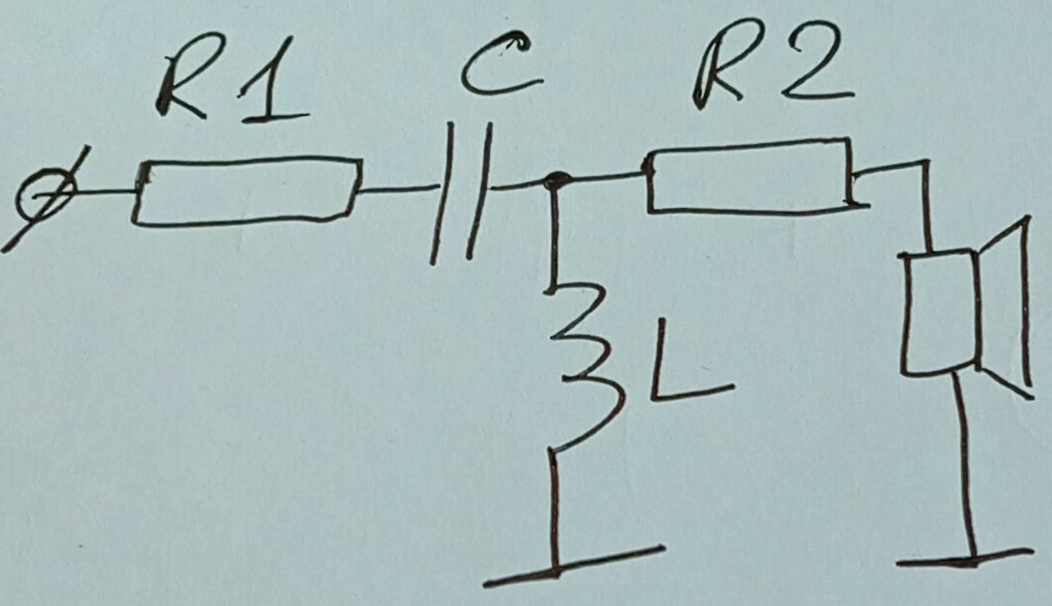 R1 C R2
L